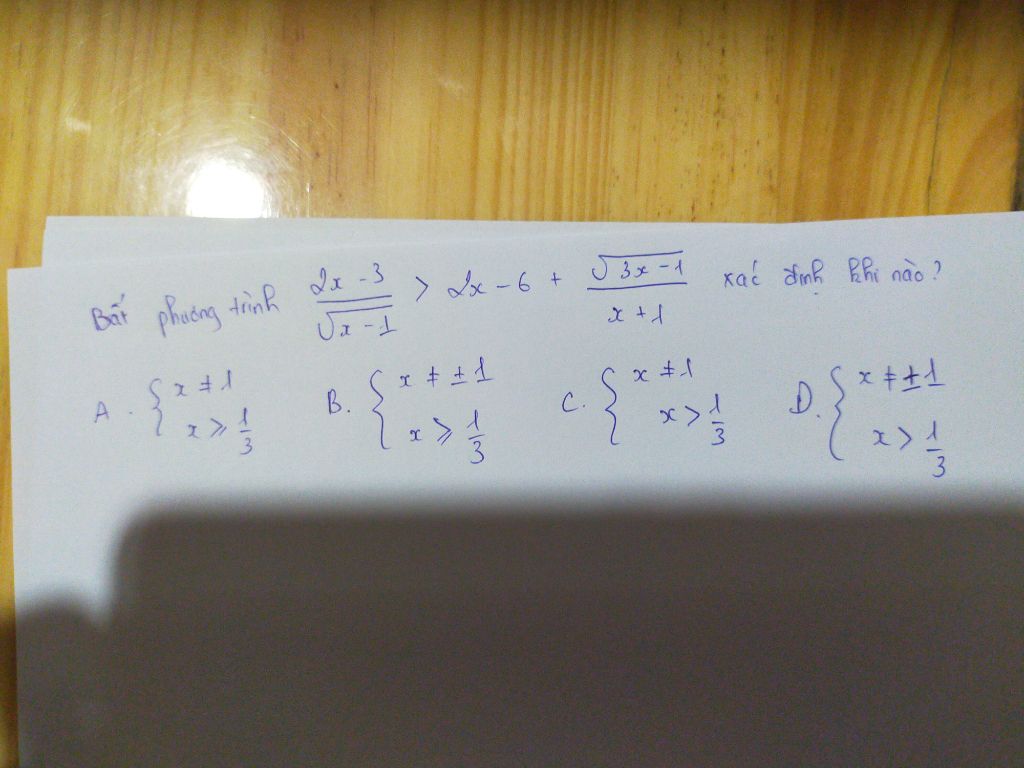 Bất phương trình \frac{2x-3}{\sqrt{x-1}} > 2x-6 + \frac{\sqrt{3x-1}}{x+1} xác định khi nào?
A. { x ≠ 1 x ⩾ \frac{1}{3} B. { x ≠ ±1 x ⩾ \frac{1}{3} C. { x ≠ 1 x > \frac{1}{3} D. { x ≠ ±1 x > \frac{1}{3}